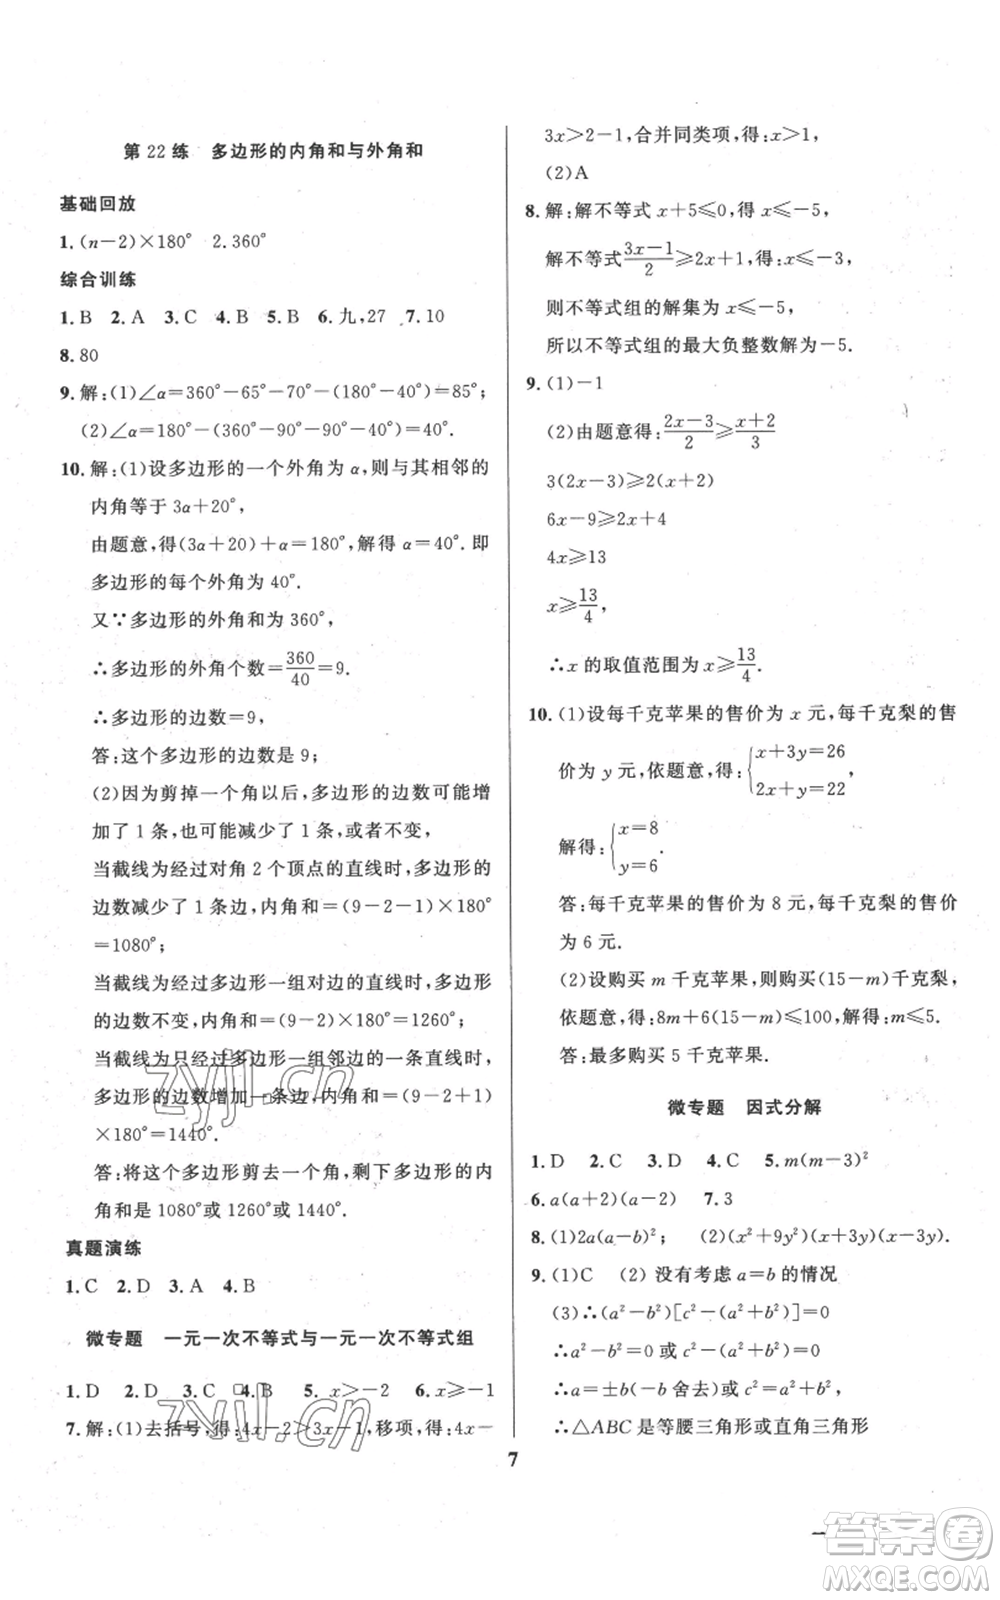 第 22 练　多边形的内角和与外角和
基础回放
1. (n－2)×180°　2.360°
综合训练
1. B　2. A　3. C　4. B　5. B　6. 九,27　7. 10
8. 80
9. 解:(1)∠α=360°－65°－70°－(180°－40°)=85°;
(2)∠α=180°－(360°－90°－90°－40°)=40°.
10. 解:(1)设多边形的一个外角为 α,则与其相邻的
内角等于 3α+20°,
由题意,得(3α+20)+α=180°,解得 α=40°. 即
多边形的每个外角为 40°.
又∵多边形的外角和为 360°,
∴多边形的外角个数=360/40=9.
∴多边形的边数=9,
答:这个多边形的边数是 9;
(2)因为剪掉一个角以后,多边形的边数可能增
加了 1 条,也可能减少了 1 条,或者不变,
当截线为经过对角 2 个顶点的直线时,多边形的
边数减少了 1 条边,内角和=(9－2－1)×180°
=1080°;
当截线为经过多边形一组对边的直线时,多边形
的边数不变,内角和=(9－2)×180°=1260°;
当截线为只经过多边形一组邻边的一条直线时,
多边形的边数增加一条边,内角和=(9－2+1)
×180°=1440°.
答:将这个多边形剪去一个角,剩下多边形的内
角和是 1080°或 1260°或 1440°.
真题演练
1. C　2. D　3. A　4. B
微专题　一元一次不等式与一元一次不等式组
1. D　2. D　3. C　4. B　5. x>－2　6. x≥－1
7. 解:(1)去括号,得:4x－2>3x－1,移项,得:4x－
3x>2－1,合并同类项,得:x>1;
(2)A
8. 解:解不等式 x+5≤0,得 x≤－5,
解不等式(3x－1)/2≥2x+1,得:x≤－3,
则不等式组的解集为 x≤－5,
所以不等式组的最大负整数解为－5.
9. (1)－1
(2)由题意得:(2x－3)/2≥(x+2)/3
3(2x－3)≥2(x+2)
6x－9≥2x+4
4x≥13
x≥13/4,
∴x 的取值范围为 x≥13/4.
10. (1)设每千克苹果的售价为 x 元,每千克梨的售
价为 y 元,依题意,得:{x+3y=26
2x+y=22,
解得:{x=8
y=6.
答:每千克苹果的售价为 8 元,每千克梨的售价
为 6 元.
(2)设购买 m 千克苹果,则购买(15－m)千克梨,
依题意,得:8m+6(15－m)≤100,解得:m≤5.
答:最多购买 5 千克苹果.
微专题　因式分解
1. D　2. C　3. D　4. C　5. m(m－3)²
6. a(a+2)(a－2)　7. 3
8. (1)2a(a－b)²;　(2)(x²+9y²)(x²－9y²).
9. (1)C　(2)没有考虑 a=b 的情况
(3)∴(a²－b²)[c²－(a²+b²)]=0
∴a²－b²=0 或 c²－(a²+b²)=0
∴a=±b(－b 舍去)或 c²=a²+b²
∴△ABC 是等腰三角形或直角三角形
7
zyjl.cn
zyjl.cn
答案卷
MXQE.COM